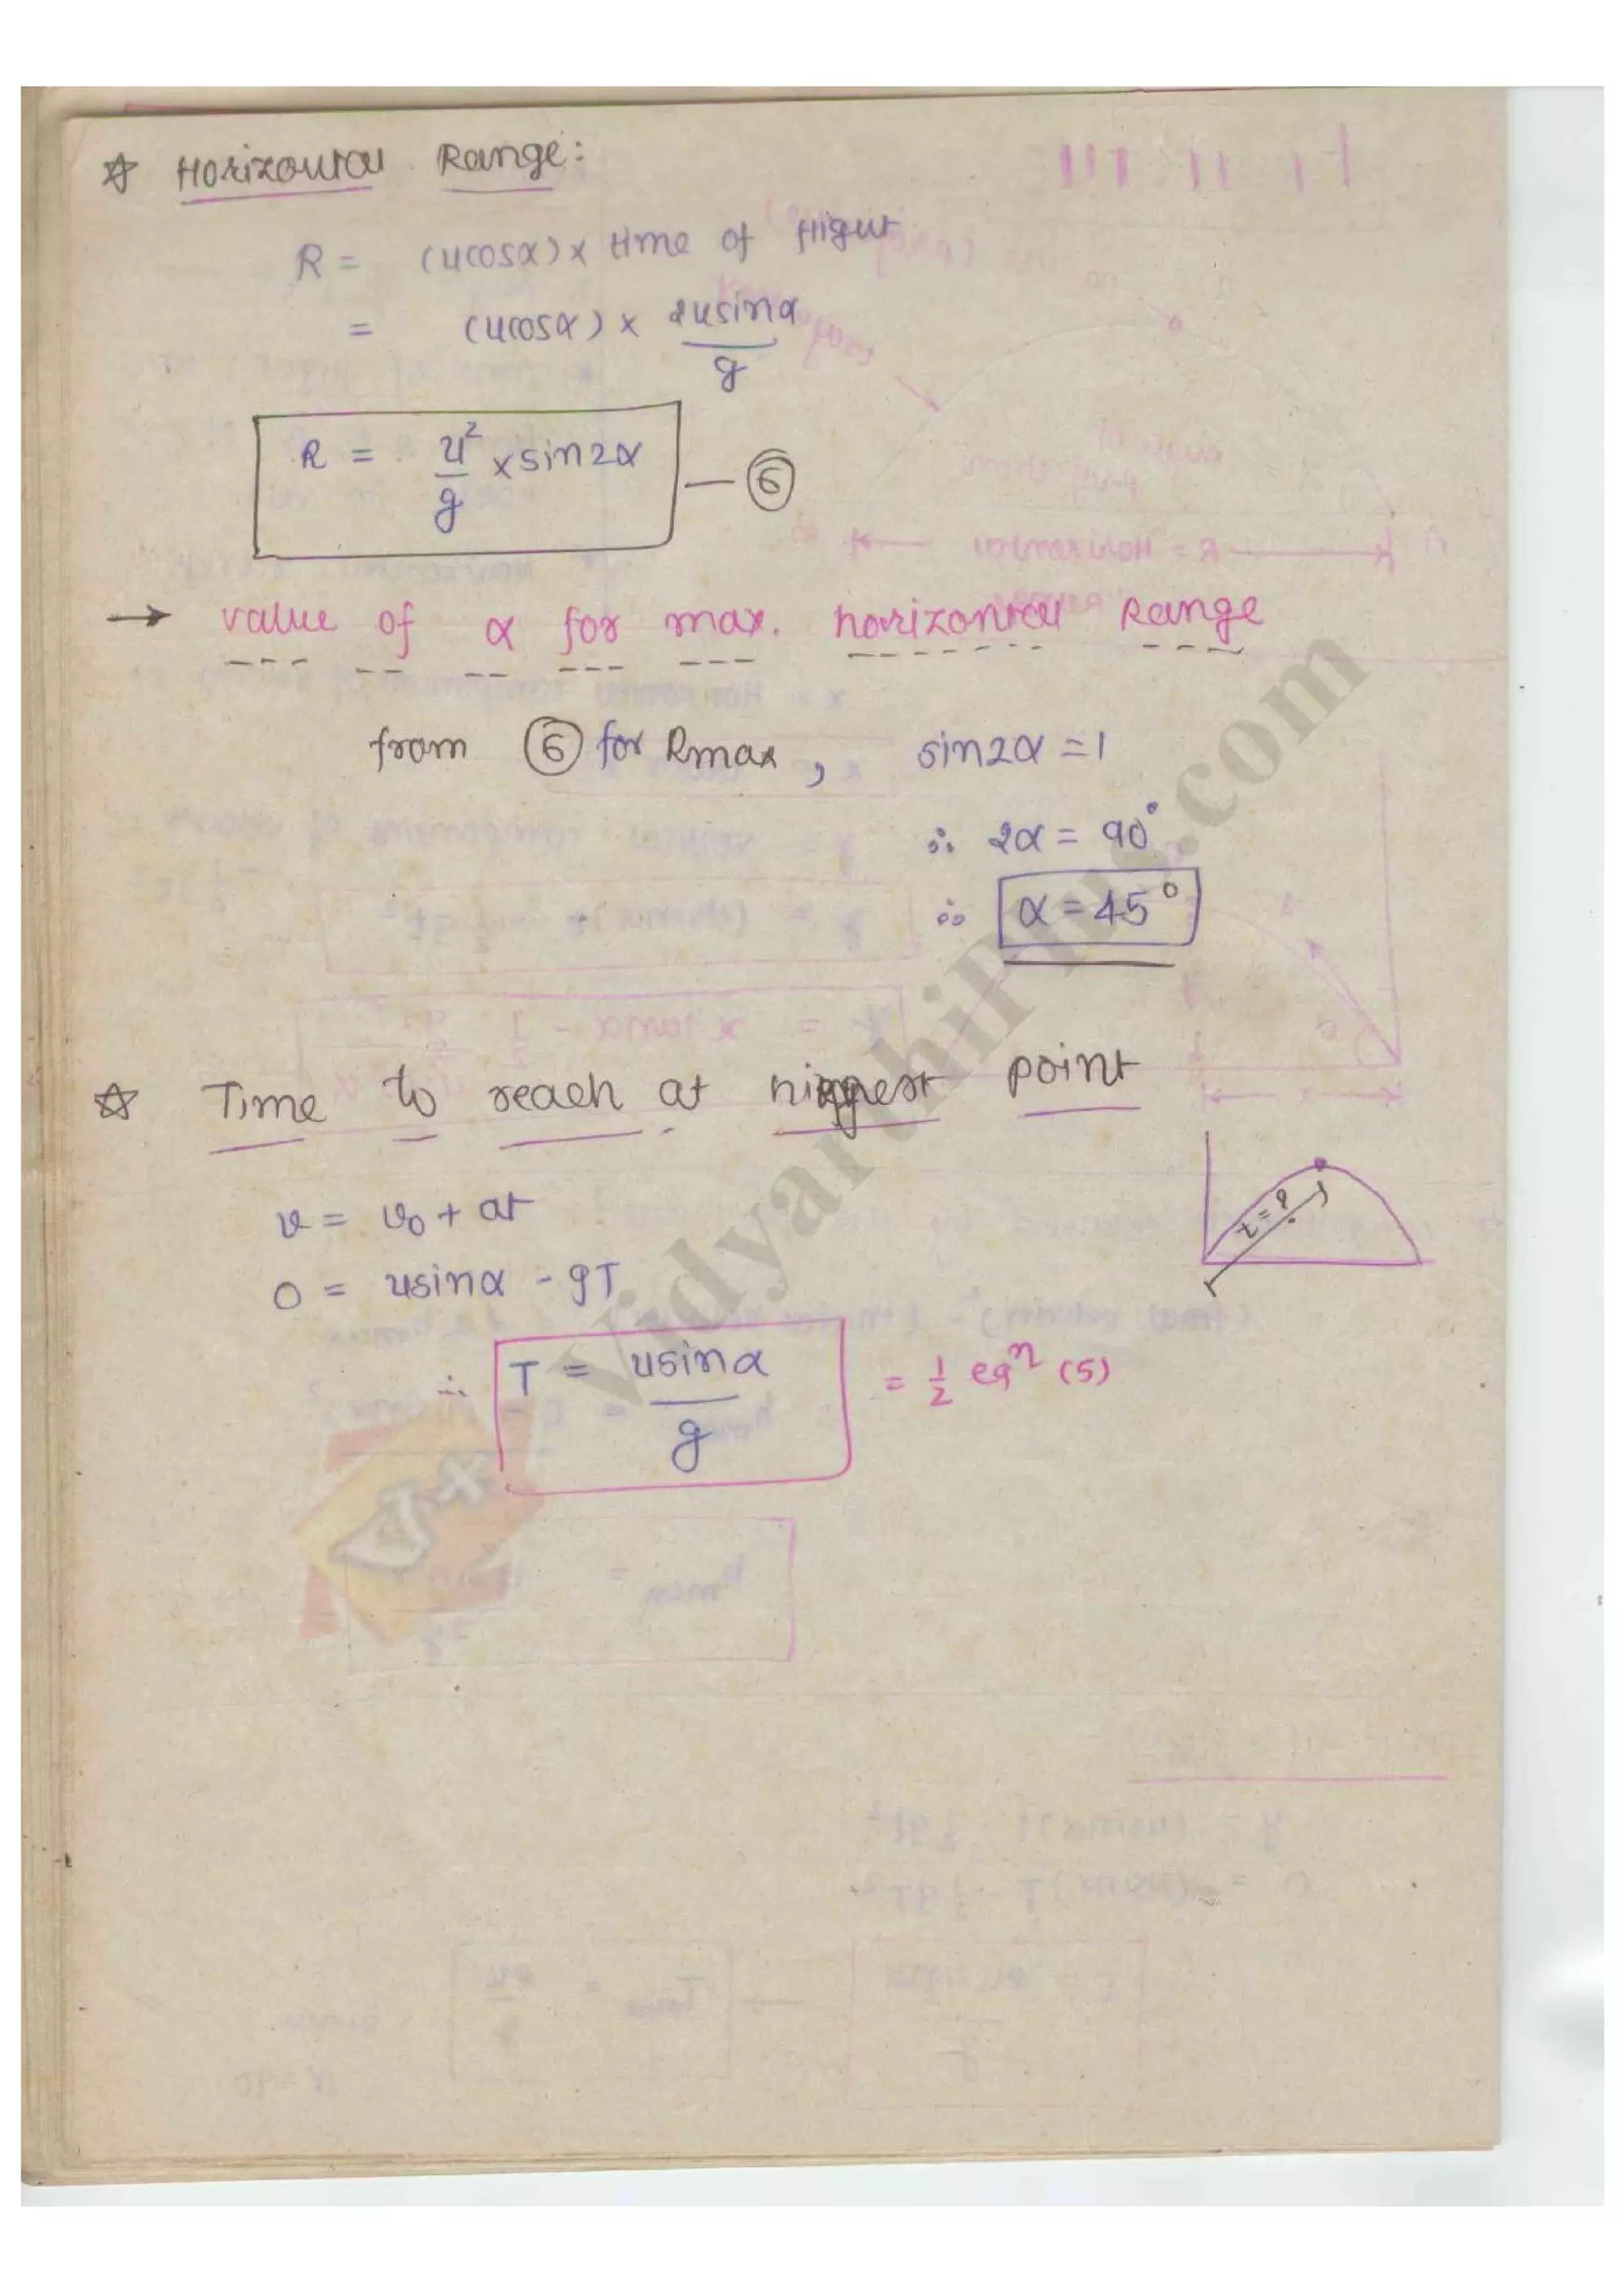 ☆ Horizontal Range:
R = (ucosα) × time of flight
= (ucosα) × 2usinα
g
R = u²/g × sin2α — ⑥
→ value of α for max. horizontal Range
from ⑥ for Rmax, sin2α = 1
∴ 2α = 90°
∴ α = 45°
☆ Time to reach at highest point
v = v₀ + at
0 = usinα - gT
t = ?
∴ T = usinα/g = 1/2 eqⁿ (5)
VidyarthiPlus.com
V+